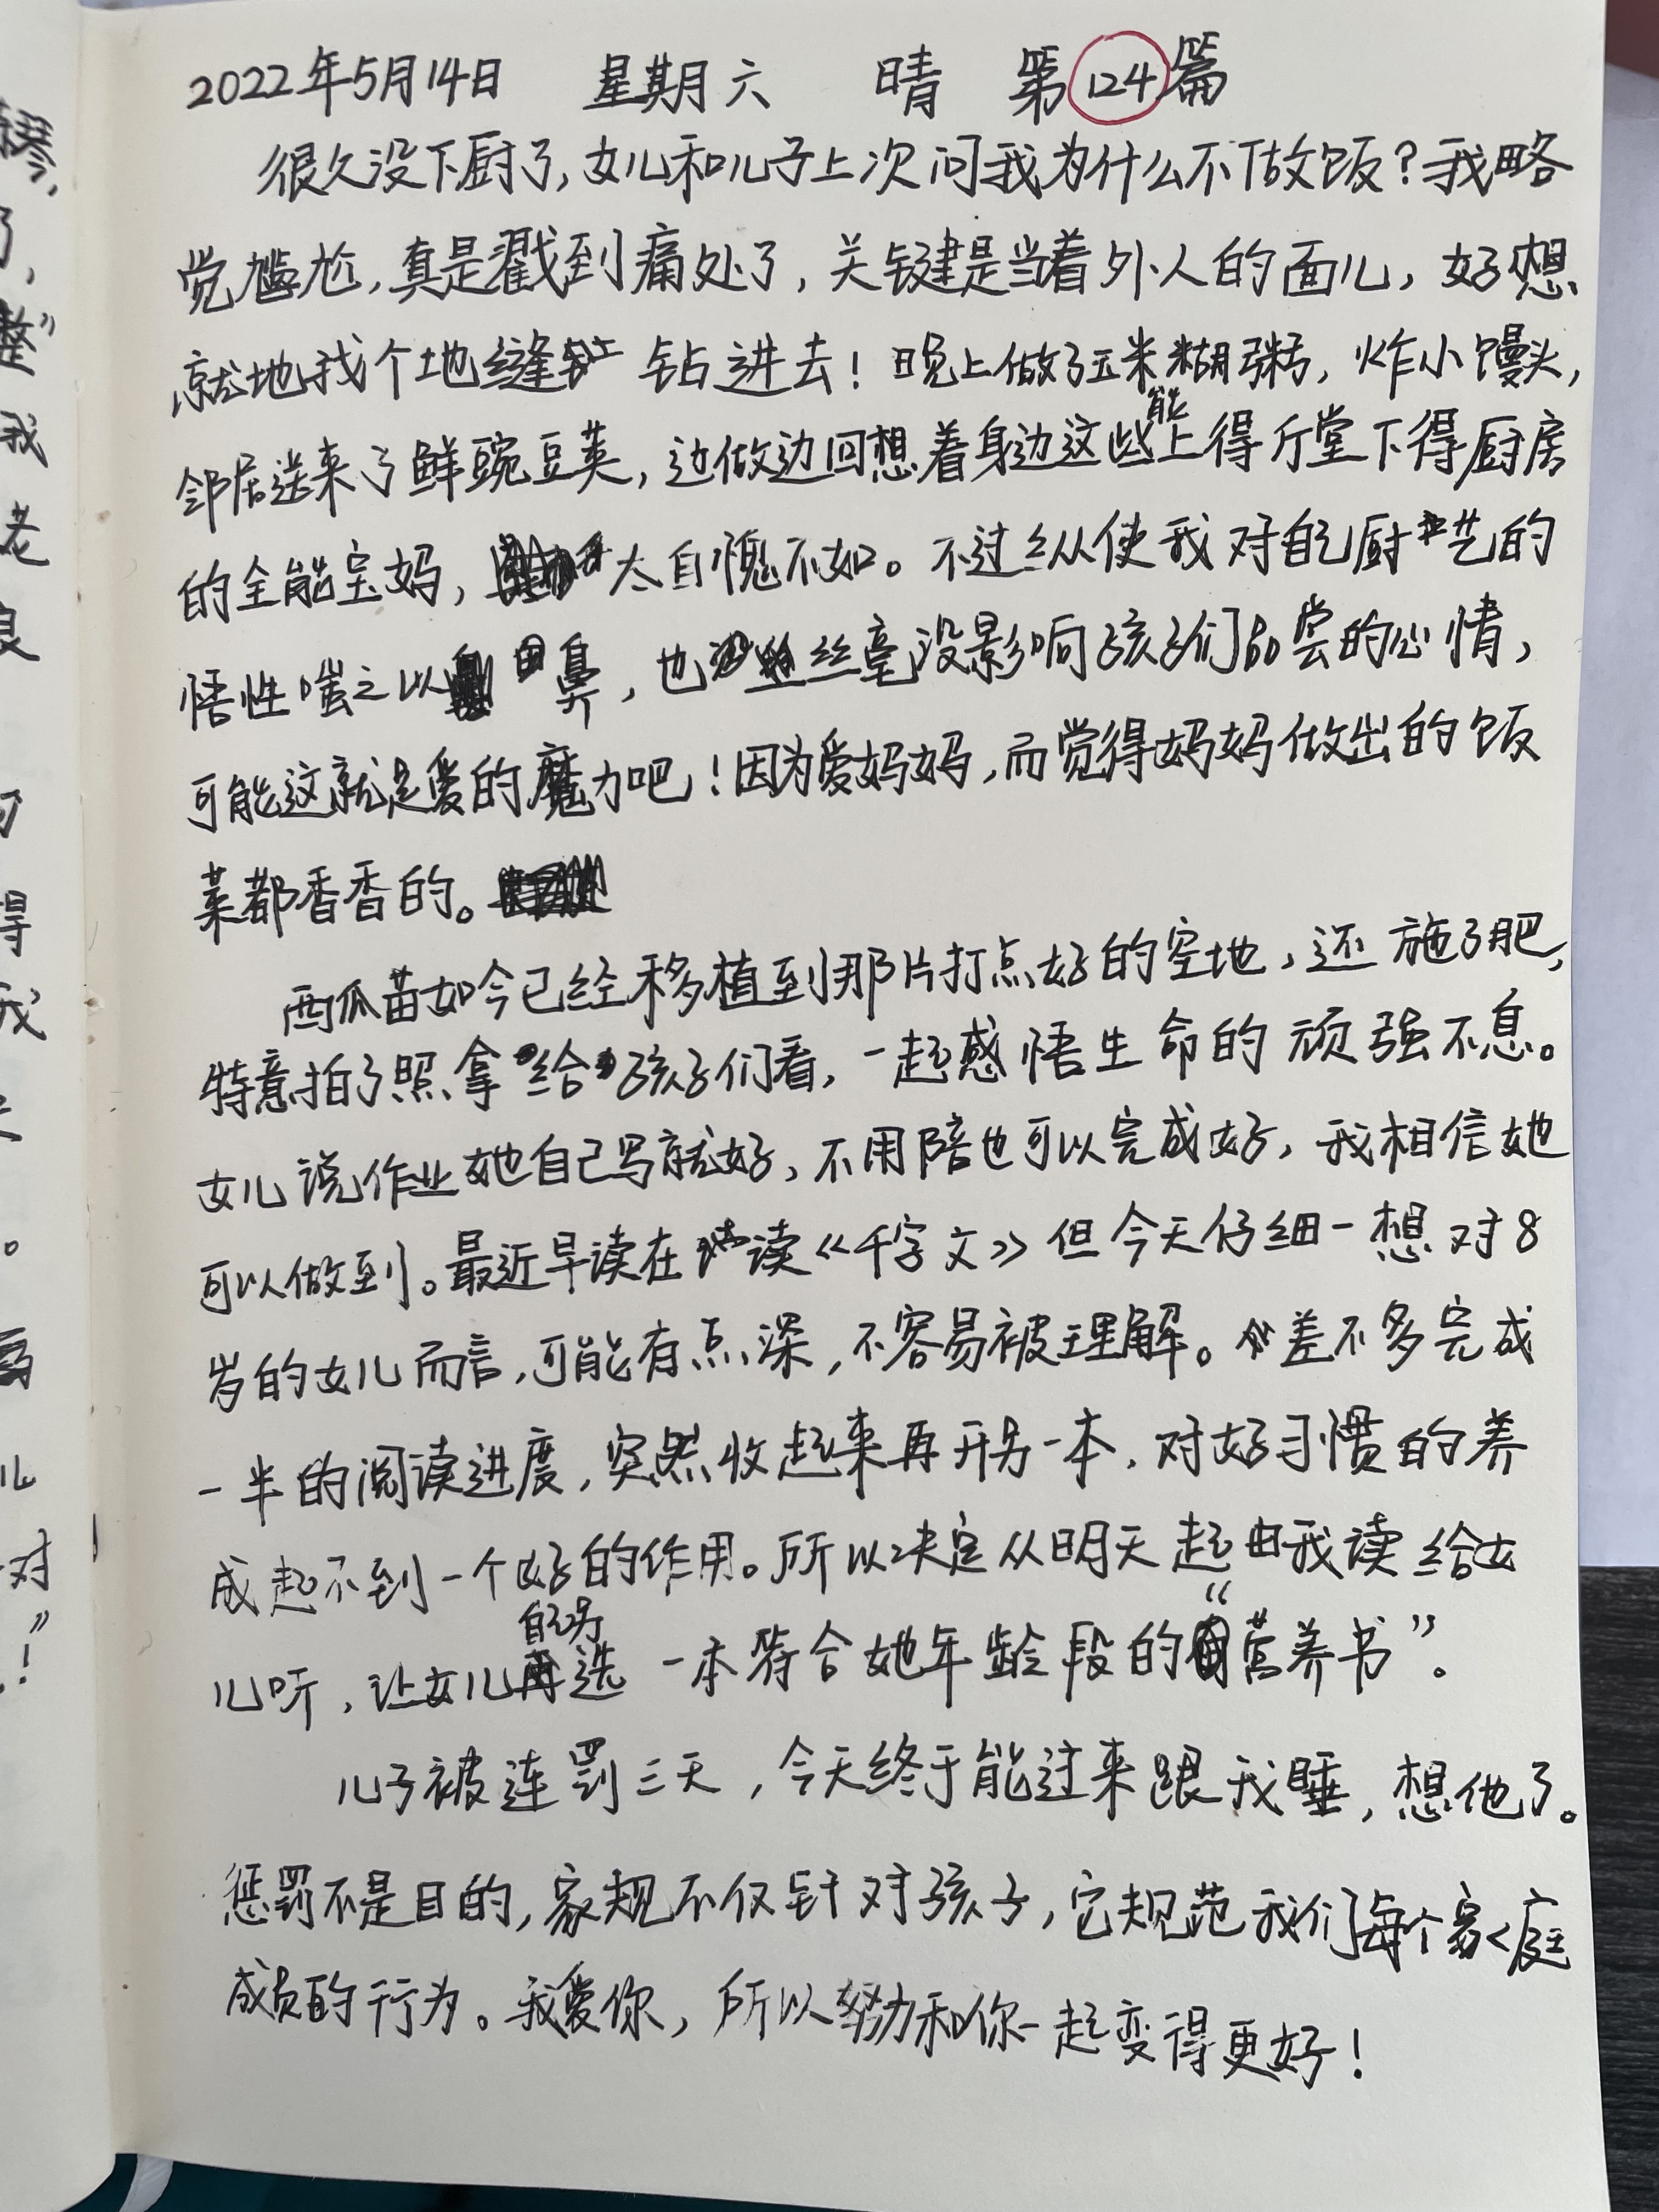 2022年5月14日 星期六 晴 第124篇
很久没下厨了,女儿和儿子上次问我为什么不做饭?我略
觉尴尬,真是戳到痛处了,关键是当着外人的面儿,好想
就地找个地缝钻进去!晚上做了玉米糊粥,炸小馒头,
邻居送来了鲜豌豆荚,边做边回想着身边这些能上得厅堂下得厨房
的全能宝妈,太自愧不如。不过纵使我对自己厨艺的
悟性嗤之以鼻,也丝毫没影响孩子们品尝的心情,
可能这就是爱的魔力吧!因为爱妈妈,而觉得妈妈做出的饭
菜都香香的。
西瓜苗如今已经移植到那片打点好的空地,还施了肥,
特意拍了照拿给孩子们看,一起感悟生命的顽强不息。
女儿说作业她自己写就好,不用陪也可以完成好,我相信她
可以做到。最近早读在读《千字文》但今天仔细一想对8
岁的女儿而言,可能有点深,不容易被理解。差不多完成
一半的阅读进度,突然收起来再开另一本,对好习惯的养
成起不到一个好的作用。所以决定从明天起由我读给女
儿听,让女儿自己另选一本符合她年龄段的“营养书”。
儿子被连罚三天,今天终于能过来跟我睡,想他了。
惩罚不是目的,家规不仅针对孩子,它规范我们每个家庭
成员的行为。我爱你,所以努力和你一起变得更好!